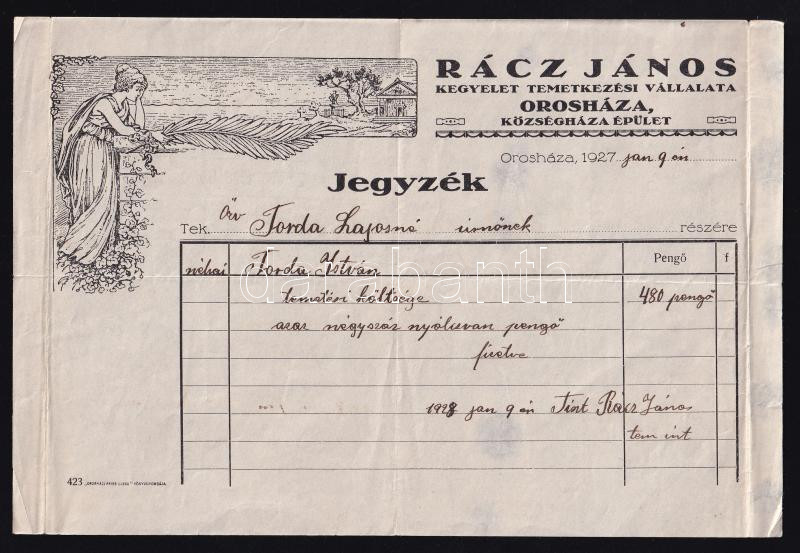 RÁCZ JÁNOS
KEGYELET TEMETKEZÉSI VÁLLALATA
OROSHÁZA,
KÖZSÉGHÁZA ÉPÜLET
Orosháza, 1927. jan 9 én
Jegyzék
Tek. Öv Torda Lajosné úrnőnek részére
néhai Torda István Pengő f
darabanth
temetési költsége 480 pengő
azaz négyszáz nyolcvan pengő
fizetve
1928 jan 9 én Tiszt Rácz János
tem int
423 „OROSHÁZI FRISS UJSÁG" KÖNYVNYOMDÁJA